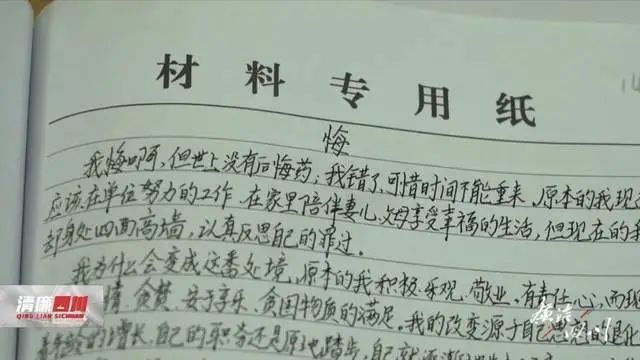 材料专用纸
悔
我悔啊,但世上没有后悔药;我错了,可惜时间不能重来。原本的我现
应该在单位努力的工作,在家里陪伴妻儿、父母享受幸福的生活,但现在的我
却身处四面高墙,认真反思自己的罪过。
我为什么会变成这番处境,原本的我积极、乐观、敬业、有责任心,而现
惰、贪婪、安于享乐、贪图物质的满足。我的改变源于自己思想的退化
的增长,自己的职务还是原地踏步,自己就
清廉四川
QING LIAN SICHUAN
廉洁四川